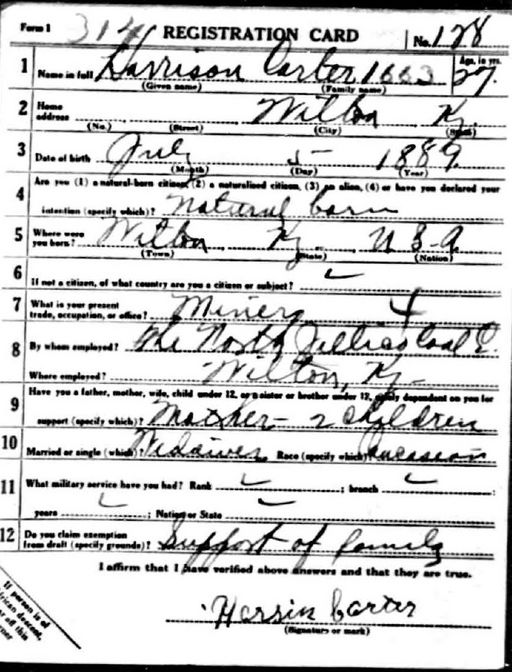 Form 1 314 REGISTRATION CARD No. 128
1 Name in full Harrison Carter 1663 Age, in yrs. 27
(Given name) (Family name)
2 Home address Wilton Ky.
(No.) (Street) (City) (State)
3 Date of birth July 5 1889
(Month) (Day) (Year)
4 Are you (1) a natural-born citizen, (2) a naturalized citizen, (3) an alien, (4) or have you declared your
intention (specify which)? Natural born
5 Where were you born? Wilton Ky. U S A
(Town) (State) (Nation)
6 If not a citizen, of what country are you a citizen or subject?
7 What is your present trade, occupation, or office? Miner 4
8 By whom employed? The North Jellico Coal
Where employed? Wilton, Ky
9 Have you a father, mother, wife, child under 12, or a sister or brother under 12, solely dependent on you for
support (specify which)? Mother - 2 children
10 Married or single (which)? Widower Race (specify which)? Caucasian
11 What military service have you had? Rank ; branch ;
years ; Nation or State
12 Do you claim exemption from draft (specify grounds)? Support of family
I affirm that I have verified above answers and that they are true.
Harsin Carter
(Signature or mark)
If person is of
African descent,